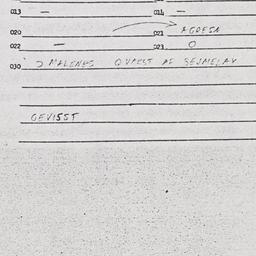 013 — 014 —
020 021 AGDESN
022 — 023 O
030 D MALENES QVÆST AF SEJMELAV
GEVISST